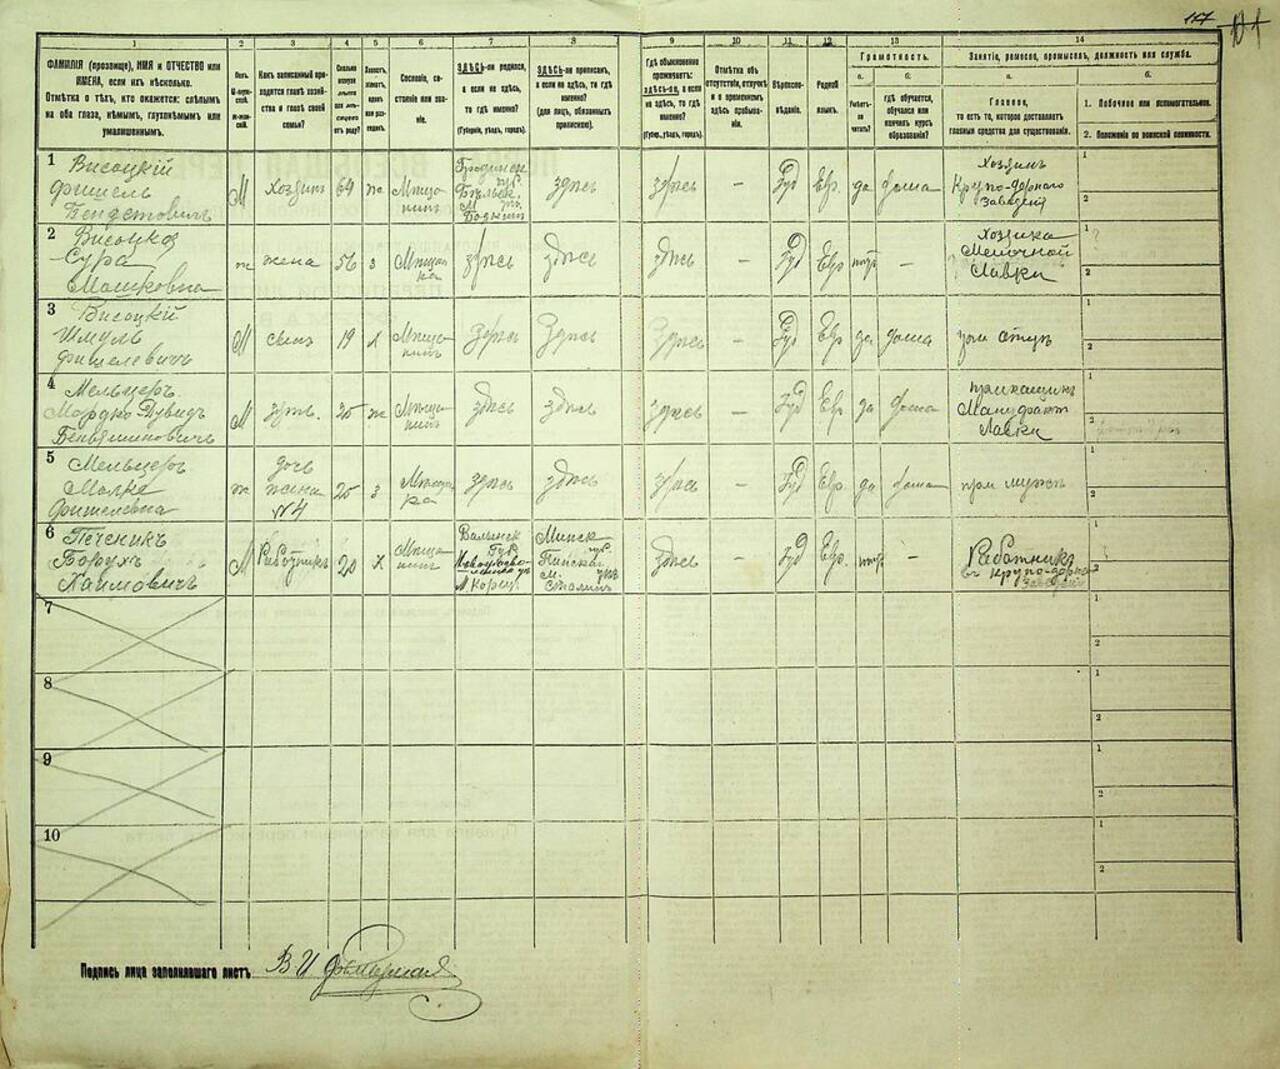 117
1
2
3
4
5
6
7
8
9
10
11
12
13
14
ФАМИЛІЯ (прозвище), ИМЯ и ОТЧЕСТВО или
ИМЕНА, если ихъ нѣсколько.
Отмѣтка о тѣхъ, кто окажется: слѣпымъ
на оба глаза, нѣмымъ, глухонѣмымъ или
умалишеннымъ.
Полъ.
Какъ записанный приходится главѣ хозяйства и главѣ своей семьи?
Сословіе, состояніе или званіе.
ЗДѢСЬ-ли родился,
а если не здѣсь,
то гдѣ именно?
(Губернія, уѣздъ, городъ).
ЗДѢСЬ-ли приписанъ,
а если не здѣсь, то гдѣ
именно?
(для лицъ, обязанныхъ
припискою).
Гдѣ обыкновенно
проживаетъ:
здѣсь-ли, а если
не здѣсь, то гдѣ
именно?
(Губ., уѣздъ, городъ).
Отмѣтка объ
отсутствіи, отлучкѣ
и о временномъ
здѣсь пребываніи.
Вѣроисповѣданіе.
Родной
языкъ.
Грамотность.
а.
Умѣетъ-ли
читать?
б.
гдѣ обучается,
обучался или
кончилъ курсъ
образованія?
Занятіе, ремесло, промыселъ, должность или служба.
а.
Главное,
то есть то, которое доставляетъ
главныя средства для существованія.
б.
1. Побочное или вспомогательное.
2. Положеніе по воинской повинности.
1
Високцій
Фишель
М
Хозяинъ
64
ж
Мѣщанинъ
Гродненск
губ.
Бѣльск
у.
М.
Боцьки
здѣсь
здѣсь
–
Іуд
Евр.
да
дома
Хозяинъ
Крупо-дернаго
Заведенія
1
2
2
Високцая
Сура
Мошковна
ж
жена
56
з
Мѣщанка
здѣсь
здѣсь
здѣсь
–
Іуд
Евр
нѣтъ
–
Хозяйка
Мелочной
Лавки
1
2
3
Високцій
Шмуль
Фишелевичъ
М
сынъ
19
х
Мѣщанинъ
здѣсь
здѣсь
здѣсь
–
Іуд
Евр
да
дома
при отцѣ
1
2
4
Мельцеръ
Мордко-Дувидъ
Беньяминовичъ
М
зять.
25
ж
Мѣщанинъ
здѣсь
здѣсь
здѣсь
–
Іуд
Евр.
да
дома
прикащикъ
Мануфакт
Лавки
1
2
5
Мельцеръ
Малке
Фишелевна
ж
дочь
жена
№4
25
з
Мѣщанка
здѣсь
здѣсь
здѣсь
–
Іуд
Евр.
да
дома
при мужѣ
1
2
6
Печеникъ
Борухъ
Хаимовичъ
М
Работникъ
20
х
Мѣщанинъ
Волынск
Губ
М. Корец.
Минск
губ.
Пинскаго
у.
М.
Столинъ
здѣсь
–
Іуд
Евр.
нѣтъ
–
Работникъ
въ крупо-дерн
Заведеніи
1
2
7
1
2
8
1
2
9
1
2
10
1
2
Подпись лица заполнившаго листъ
В. И.